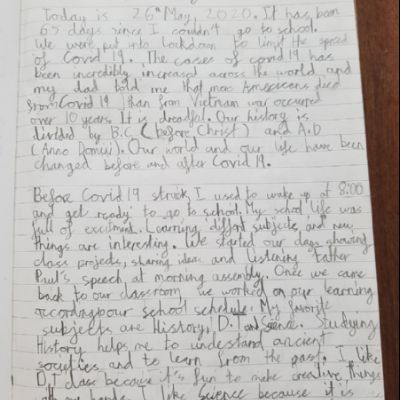 Today is 26th May, 2020. It has been
65 days since I couldn't go to school.
We were put into Lockdown to limit the spread
of Covid 19. The cases of covid 19 has
been incredibly increased across the world, and
my dad told me that more Americans died
from Covid 19 than from Vietnam war occured
over 10 years. It is dreadful. Our history is
divided by B.C (before Christ) and A.D
(Anno Domini). Our world and our life have been
changed before and after Covid 19.
Before Covid 19 struck, I used to wake up at 8:00
and get ready to go to school. My school life was
full of excitment. Learning different subjects and new
things are interesting. We started our days showing
class projects, sharing ideas and listening Father
Paul's speech, at morning assembly. Once we came
back to our classroom we worked on our learning
according our school schedule. My favorite
subjects are History, D.T and science. Studying
History helps me to understand ancient
societies and to learn from the past. I like
D.T class because it's fun to make creative things
our hands. I like science because it is